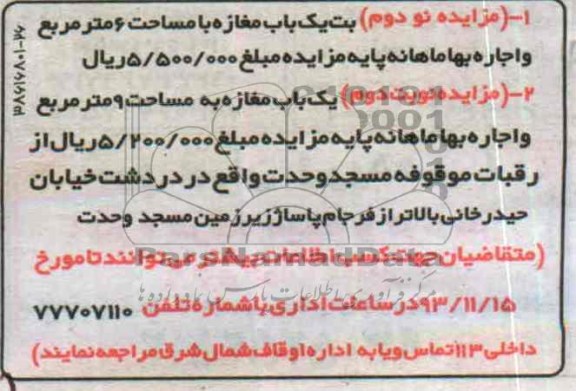 ۱-(مزایده نو دوم) بت یک باب مغازه با مساحت ۶ متر مربع
واجاره بها ماهانه پایه مزایده مبلغ ۵/۵۰۰/۰۰۰ ریال
۲-(مزایده نوبت دوم) یک باب مغازه به مساحت ۹ متر مربع
واجاره بها ماهانه پایه مزایده مبلغ ۵/۲۰۰/۰۰۰ ریال از
رقبات موقوفه مسجد وحدت واقع در دردشت خیابان
حیدرخانی بالاتر از فرجام پاساژ زیر زمین مسجد وحدت
(متقاضیان جهت کسب اطلاعات بیشتر می توانند تا مورخ
۹۳/۱۱/۱۵ در ساعات اداری با شماره تلفن ۷۷۷۰۷۱۱۰
داخلی ۱۱۳ تماس ویا به اداره اوقاف شمال شرق مراجعه نمایند)
۳۸۶۱۶۸۰۱-۳۶
ParsNamadData